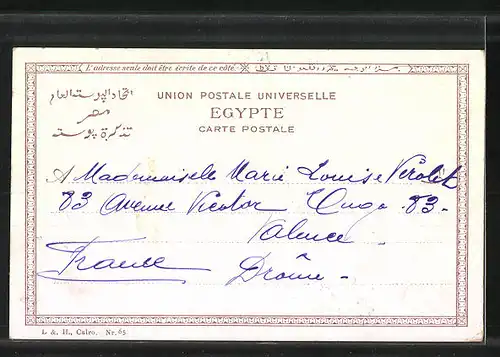 L'adresse seule doit être écrite de ce côté.
اتحاد البوسته العام
مصر
تذكرة بوسته
UNION POSTALE UNIVERSELLE
EGYPTE
CARTE POSTALE
A Mademoiselle Marie Louise
83 Avenue Victor Hugo 83-
Valence
France
Drôme -
L. & H., Cairo. Nr. 65